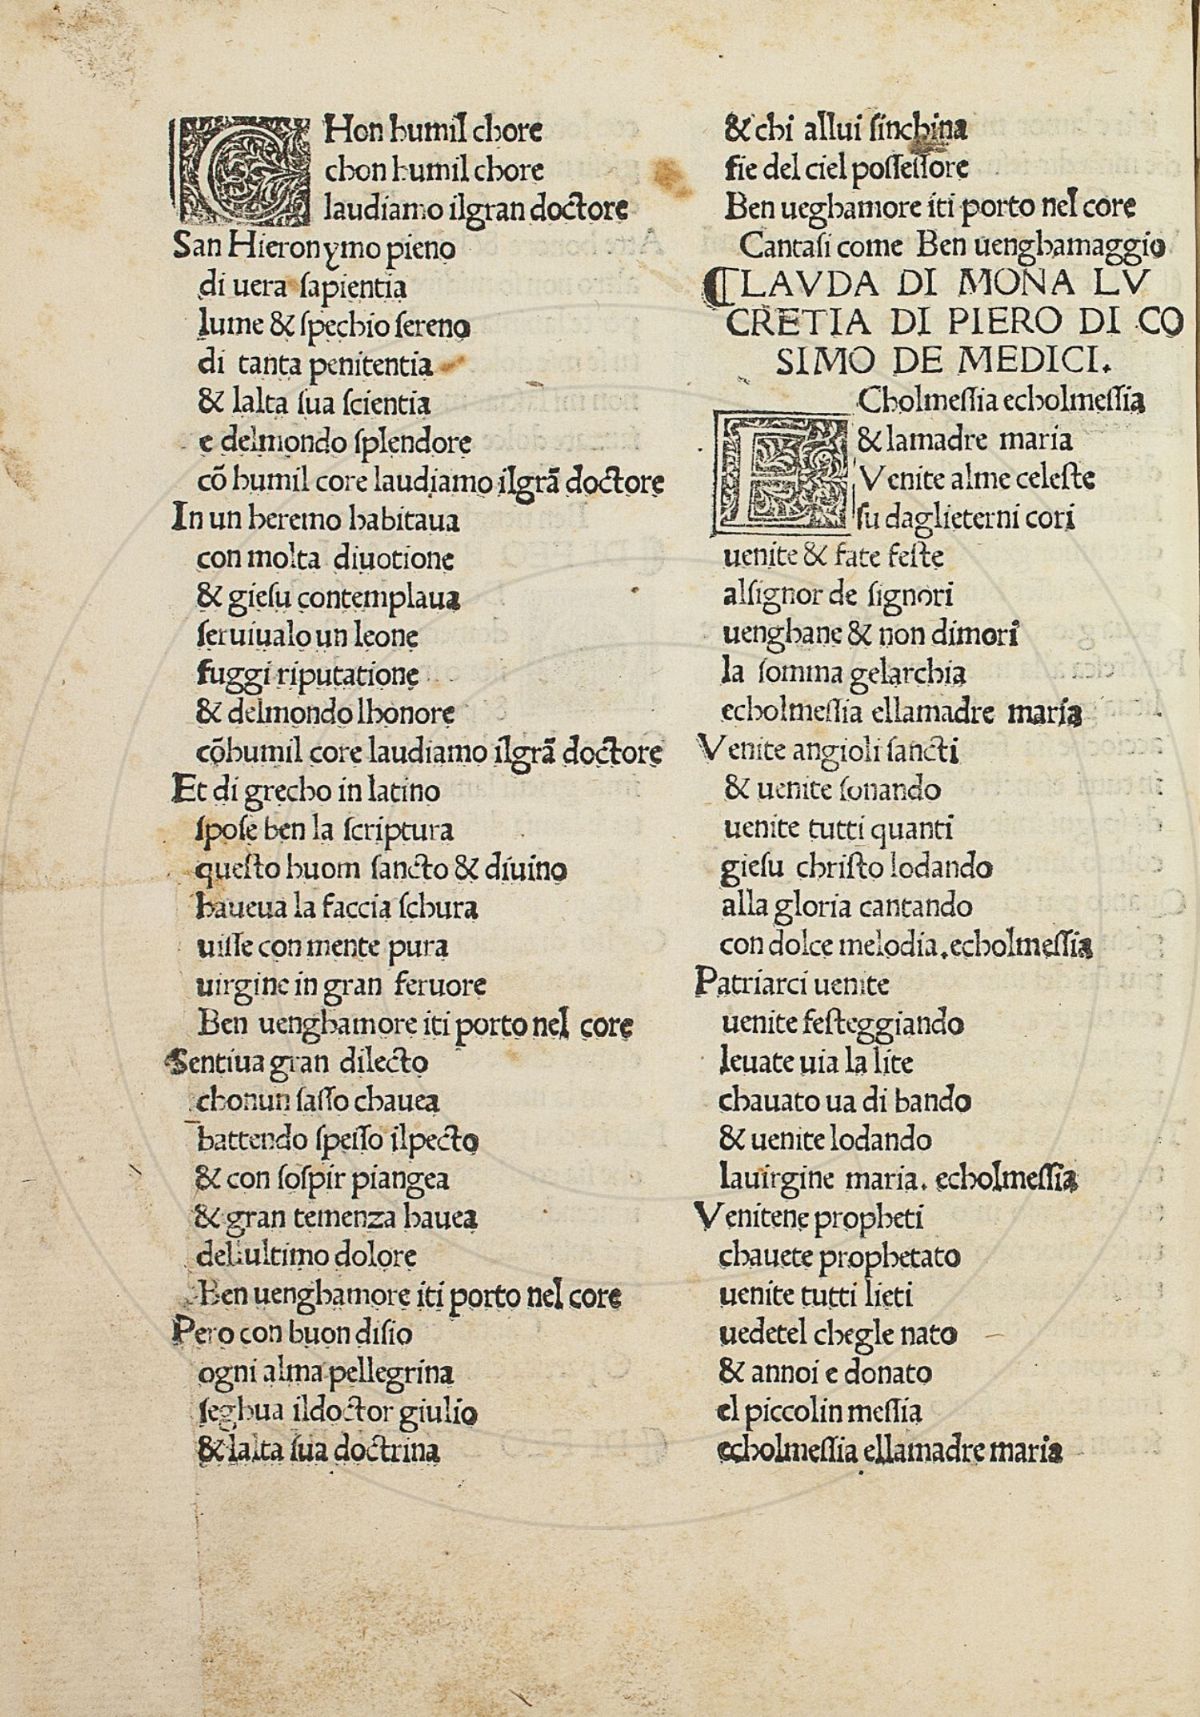 CHon humil chore
chon humil chore
laudiamo ilgran doctore
San Hieronymo pieno
di uera sapientia
lume & spechio sereno
di tanta penitentia
& lalta sua scientia
e delmondo splendore
cõ humil core laudiamo ilgrã doctore
In un heremo habitaua
con molta diuotione
& giesu contemplaua
seruiualo un leone
fuggi riputatione
& delmondo lhonore
cõ humil core laudiamo ilgrã doctore
Et di grecho in latino
spose ben la scriptura
questo huom sancto & diuino
haueua la faccia schura
uisse con mente pura
uirgine in gran feruore
Ben uenghamore iti porto nel core
Sentiua gran dilecto
chonun sasso chauea
battendo spesso ilpecto
& con sospir piangea
& gran temenza hauea
dellultimo dolore
Ben uenghamore iti porto nel core
Pero con buon disio
ogni alma pellegrina
seghua ildoctor giulio
& lalta sua doctrina
& chi allui sinchina
fie del ciel possessore
Ben ueghamore iti porto nel core
Cantasi come Ben uenghamaggio
¶LAVDA DI MONA LV
CRETIA DI PIERO DI CO
SIMO DE MEDICI.
ECholmessia echolmessia
& lamadre maria
Venite alme celeste
su daglieterni cori
uenite & fate feste
alsignor de signori
uenghane & non dimori
la somma gelarchia
echolmessia ellamadre maria
Venite angioli sancti
& uenite sonando
uenite tutti quanti
giesu christo lodando
alla gloria cantando
con dolce melodia.echolmessia
Patriarci uenite
uenite festeggiando
leuate uia la lite
chauato ua di bando
& uenite lodando
lauirgine maria. echolmessia
Venitene propheti
chauete prophetato
uenite tutti lieti
uedetel chegle nato
& annoi e donato
el piccolin messia
echolmessia ellamadre maria